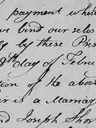 payment where
we bind our selve
ly by these Pres
8th day of Febru
tion of the abov
is a Marriag
Joseph Thom